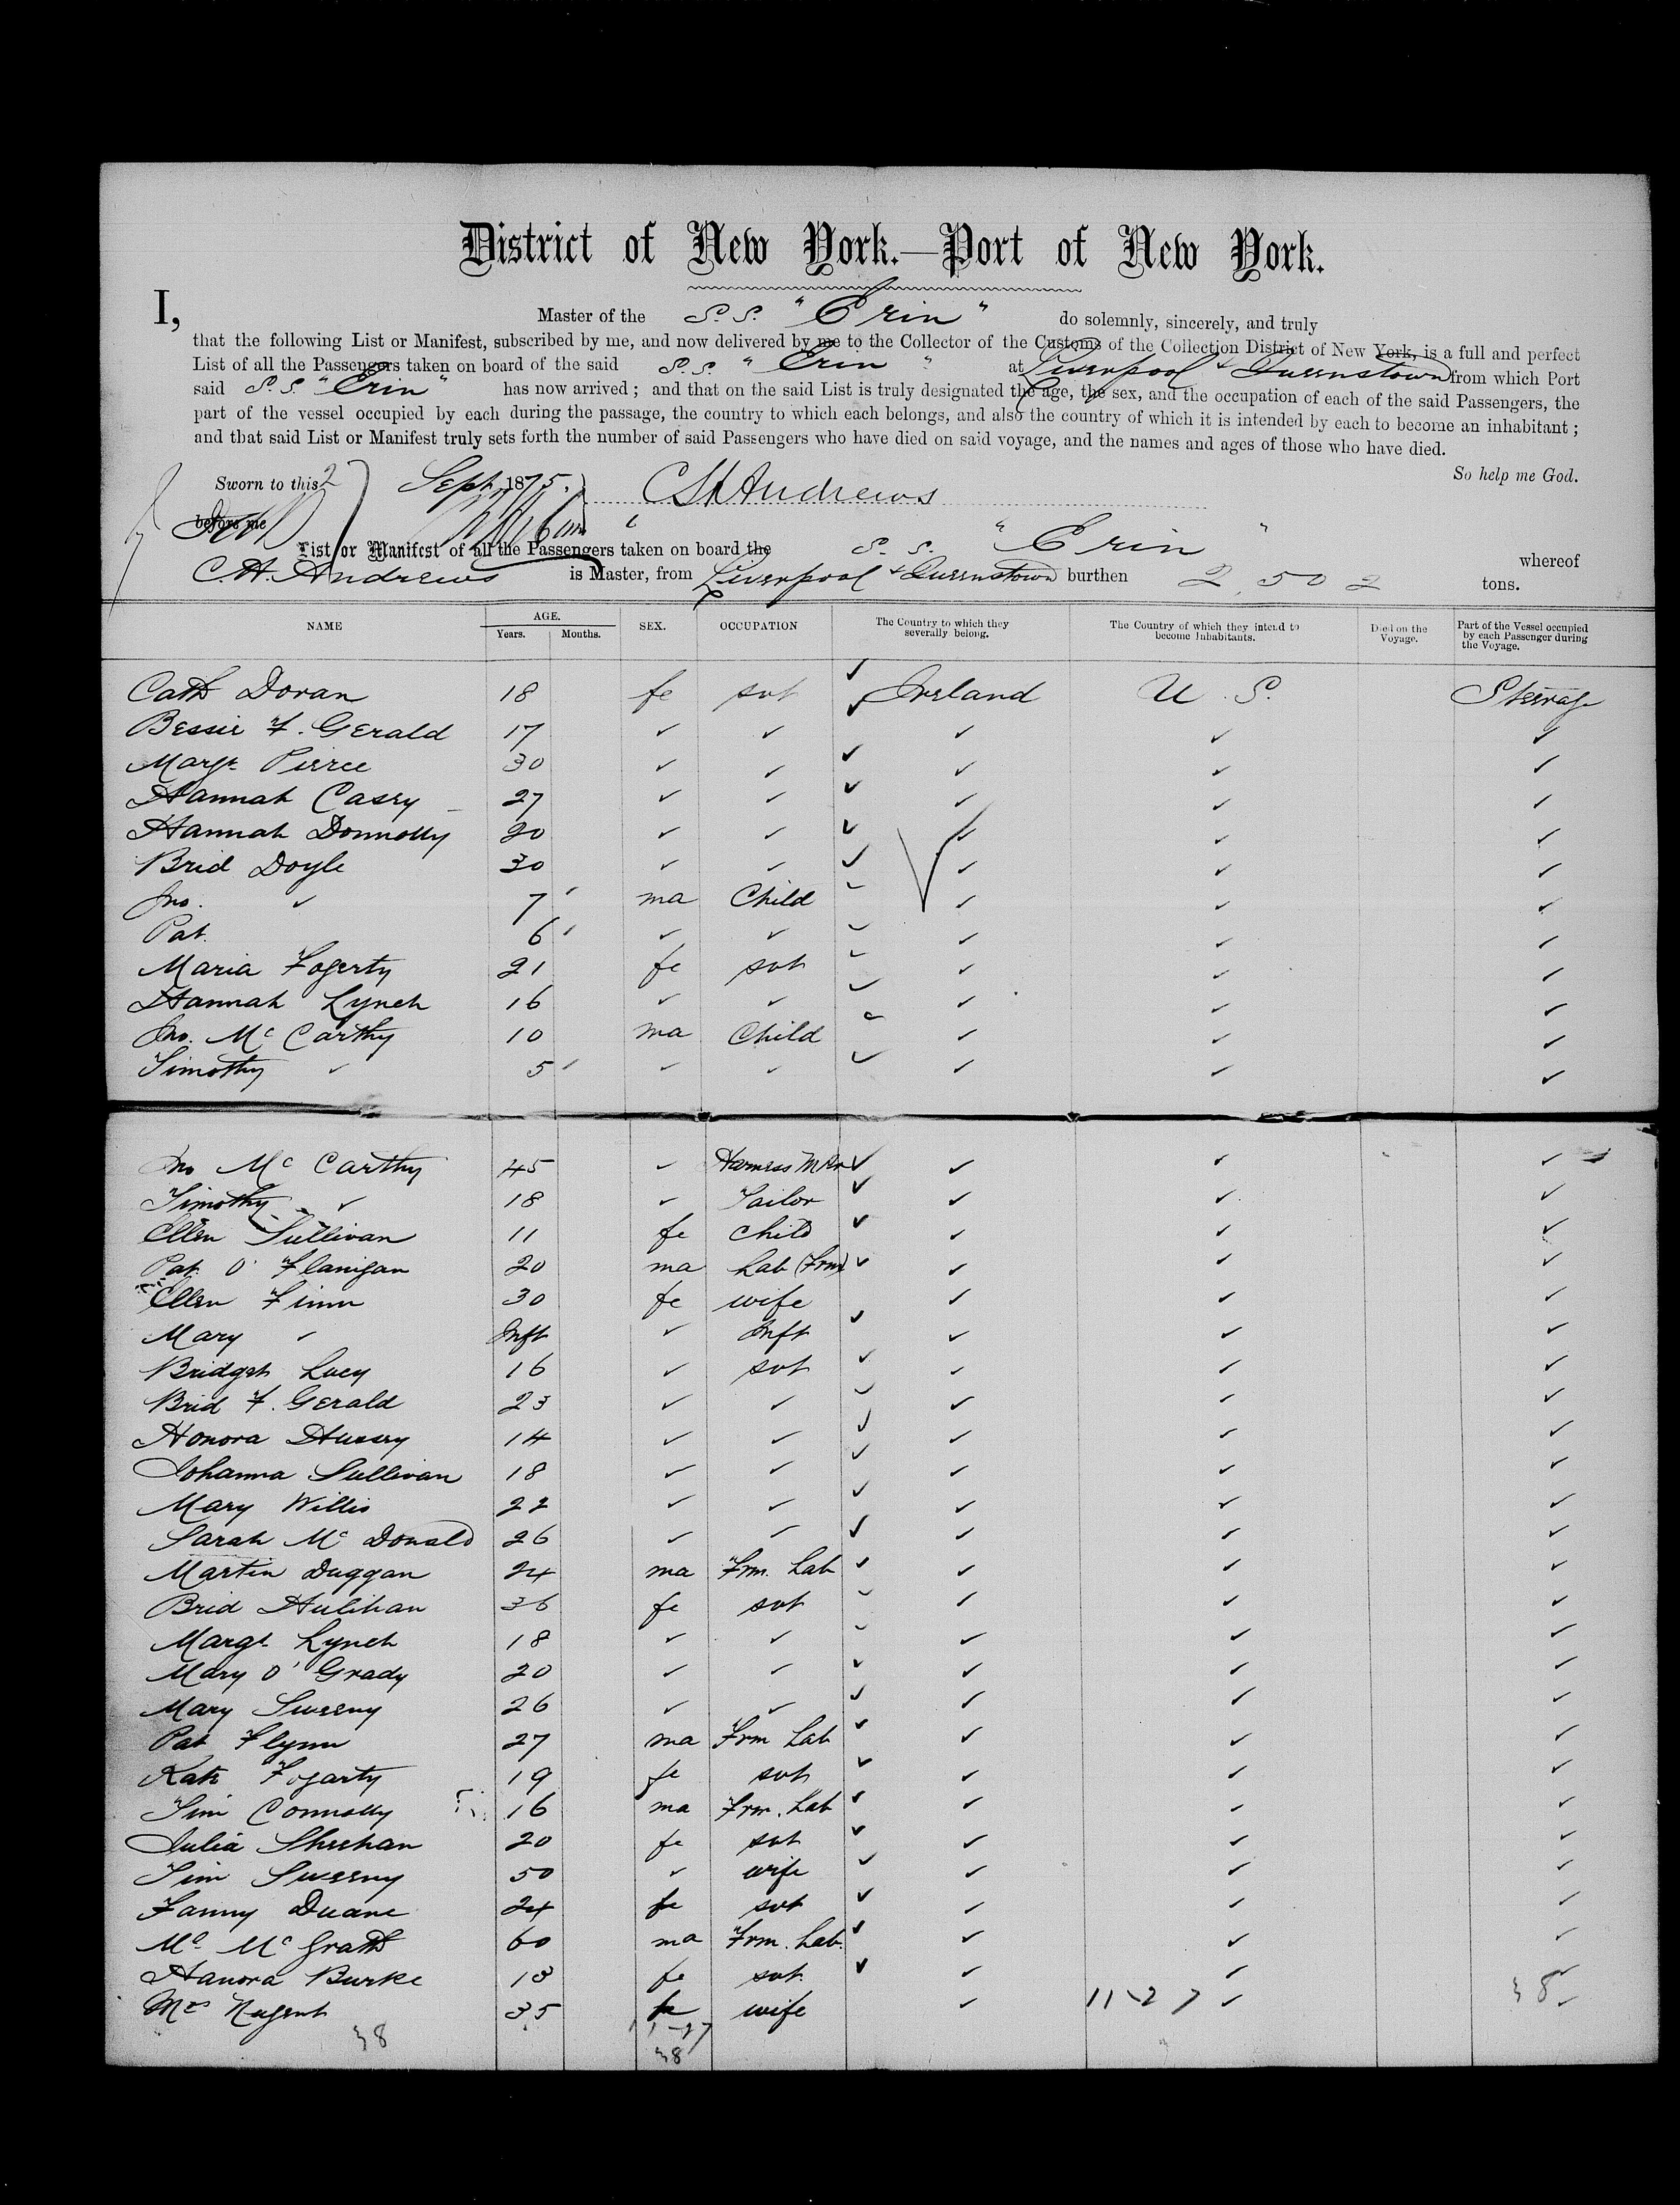 District of New York.—Port of New York.
I, Master of the S.S. "Erin" do solemnly, sincerely, and truly
that the following List or Manifest, subscribed by me, and now delivered by me to the Collector of the Customs of the Collection District of New York, is a full and perfect
List of all the Passengers taken on board of the said S.S. "Erin" at Liverpool & Queenstown from which Port
said S.S. "Erin" has now arrived; and that on the said List is truly designated the age, the sex, and the occupation of each of the said Passengers, the
part of the vessel occupied by each during the passage, the country to which each belongs, and also the country of which it is intended by each to become an inhabitant;
and that said List or Manifest truly sets forth the number of said Passengers who have died on said voyage, and the names and ages of those who have died.
So help me God.
Sworn to this 2 Sept 1875. C H Andrews
before me
List or Manifest of all the Passengers taken on board the S.S. "Erin" whereof
C.H. Andrews is Master, from Liverpool & Queenstown burthen 2,502 tons.
NAME AGE. Years. Months. SEX. OCCUPATION The Country to which they severally belong. The Country of which they intend to become Inhabitants. Died on the Voyage. Part of the Vessel occupied by each Passenger during the Voyage.
Cath Doran 18 fe svt ✓ Ireland U.S. Steerage
Bessie F. Gerald 17 ✓ ✓ ✓ ✓ ✓ ✓
Margt Pierce 30 ✓ ✓ ✓ ✓ ✓ ✓
Hannah Casey 27 ✓ ✓ ✓ ✓ ✓ ✓
Hannah Donnolly 20 ✓ ✓ ✓ ✓ ✓ ✓
Brid Doyle 30 ✓ ✓ ✓ ✓ ✓ ✓
Jno. ✓ 7 ma Child ✓ ✓ ✓ ✓
Pat. 6 ✓ ✓ ✓ ✓ ✓ ✓
Maria Fogerty 21 fe svt ✓ ✓ ✓ ✓
Hannah Lynch 16 ✓ ✓ ✓ ✓ ✓ ✓
Jno. McCarthy 10 ma Child ✓ ✓ ✓ ✓
Timothy ✓ 5 ✓ ✓ ✓ ✓ ✓ ✓
Jno McCarthy 45 ✓ Harness Mkr ✓ ✓ ✓ ✓
Timothy ✓ 18 ✓ Tailor ✓ ✓ ✓ ✓
Ellen Sullivan 11 fe child ✓ ✓ ✓ ✓
Pat. O'Flanigan 20 ma Lab (Frm) ✓ ✓ ✓ ✓
Ellen Finn 30 fe wife ✓ ✓ ✓
Mary ✓ Inft ✓ Inft ✓ ✓ ✓ ✓
Bridget Lucy 16 ✓ svt ✓ ✓ ✓ ✓
Brid F. Gerald 23 ✓ ✓ ✓ ✓ ✓ ✓
Honora Hussey 14 ✓ ✓ ✓ ✓ ✓ ✓
Johanna Sullivan 18 ✓ ✓ ✓ ✓ ✓ ✓
Mary Willis 22 ✓ ✓ ✓ ✓ ✓ ✓
Sarah McDonald 26 ✓ ✓ ✓ ✓ ✓ ✓
Martin Duggan 24 ma Frm. Lab ✓ ✓ ✓ ✓
Brid Hulihan 36 fe svt ✓ ✓ ✓ ✓
Margt Lynch 18 ✓ ✓ ✓ ✓ ✓ ✓
Mary O'Grady 20 ✓ ✓ ✓ ✓ ✓ ✓
Mary Sweeny 26 ✓ ✓ ✓ ✓ ✓ ✓
Pat Flynn 27 ma Frm Lab ✓ ✓ ✓ ✓
Kate Fogarty 19 fe svt ✓ ✓ ✓ ✓
Tim Connolly 16 ma Frm. Lab ✓ ✓ ✓ ✓
Julia Sheehan 20 fe svt ✓ ✓ ✓ ✓
Tim Sweeny 50 ✓ wife ✓ ✓ ✓ ✓
Fanny Duane 24 fe svt ✓ ✓ ✓ ✓
Ml McGrath 60 ma Frm. Lab. ✓ ✓ ✓ ✓
Hanora Burke 18 fe svt ✓ ✓ ✓ ✓
Mrs Nugent 35 fe wife ✓ 11-27 ✓ 38 ✓
38 11-27
38